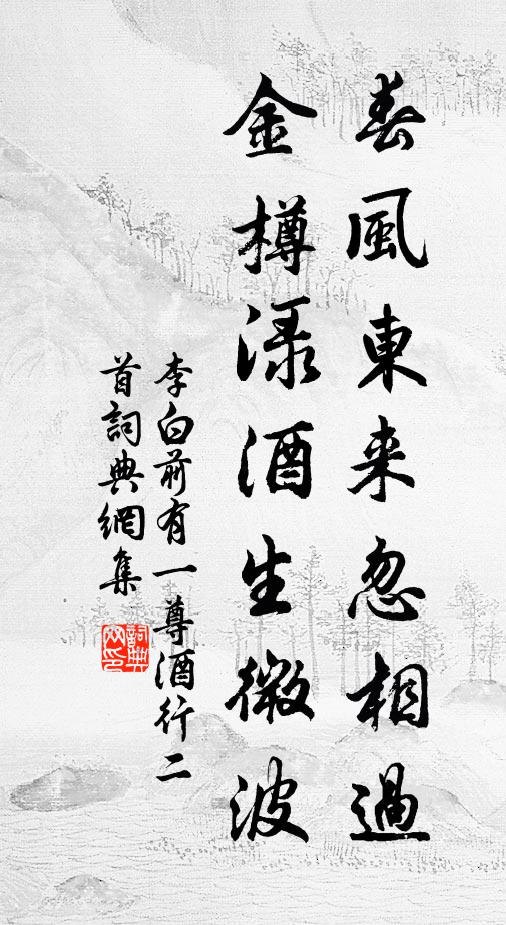 春風東来忽相過
金樽渌酒生微波
李白前有一尊酒行二
首詞典網集
詞典网印